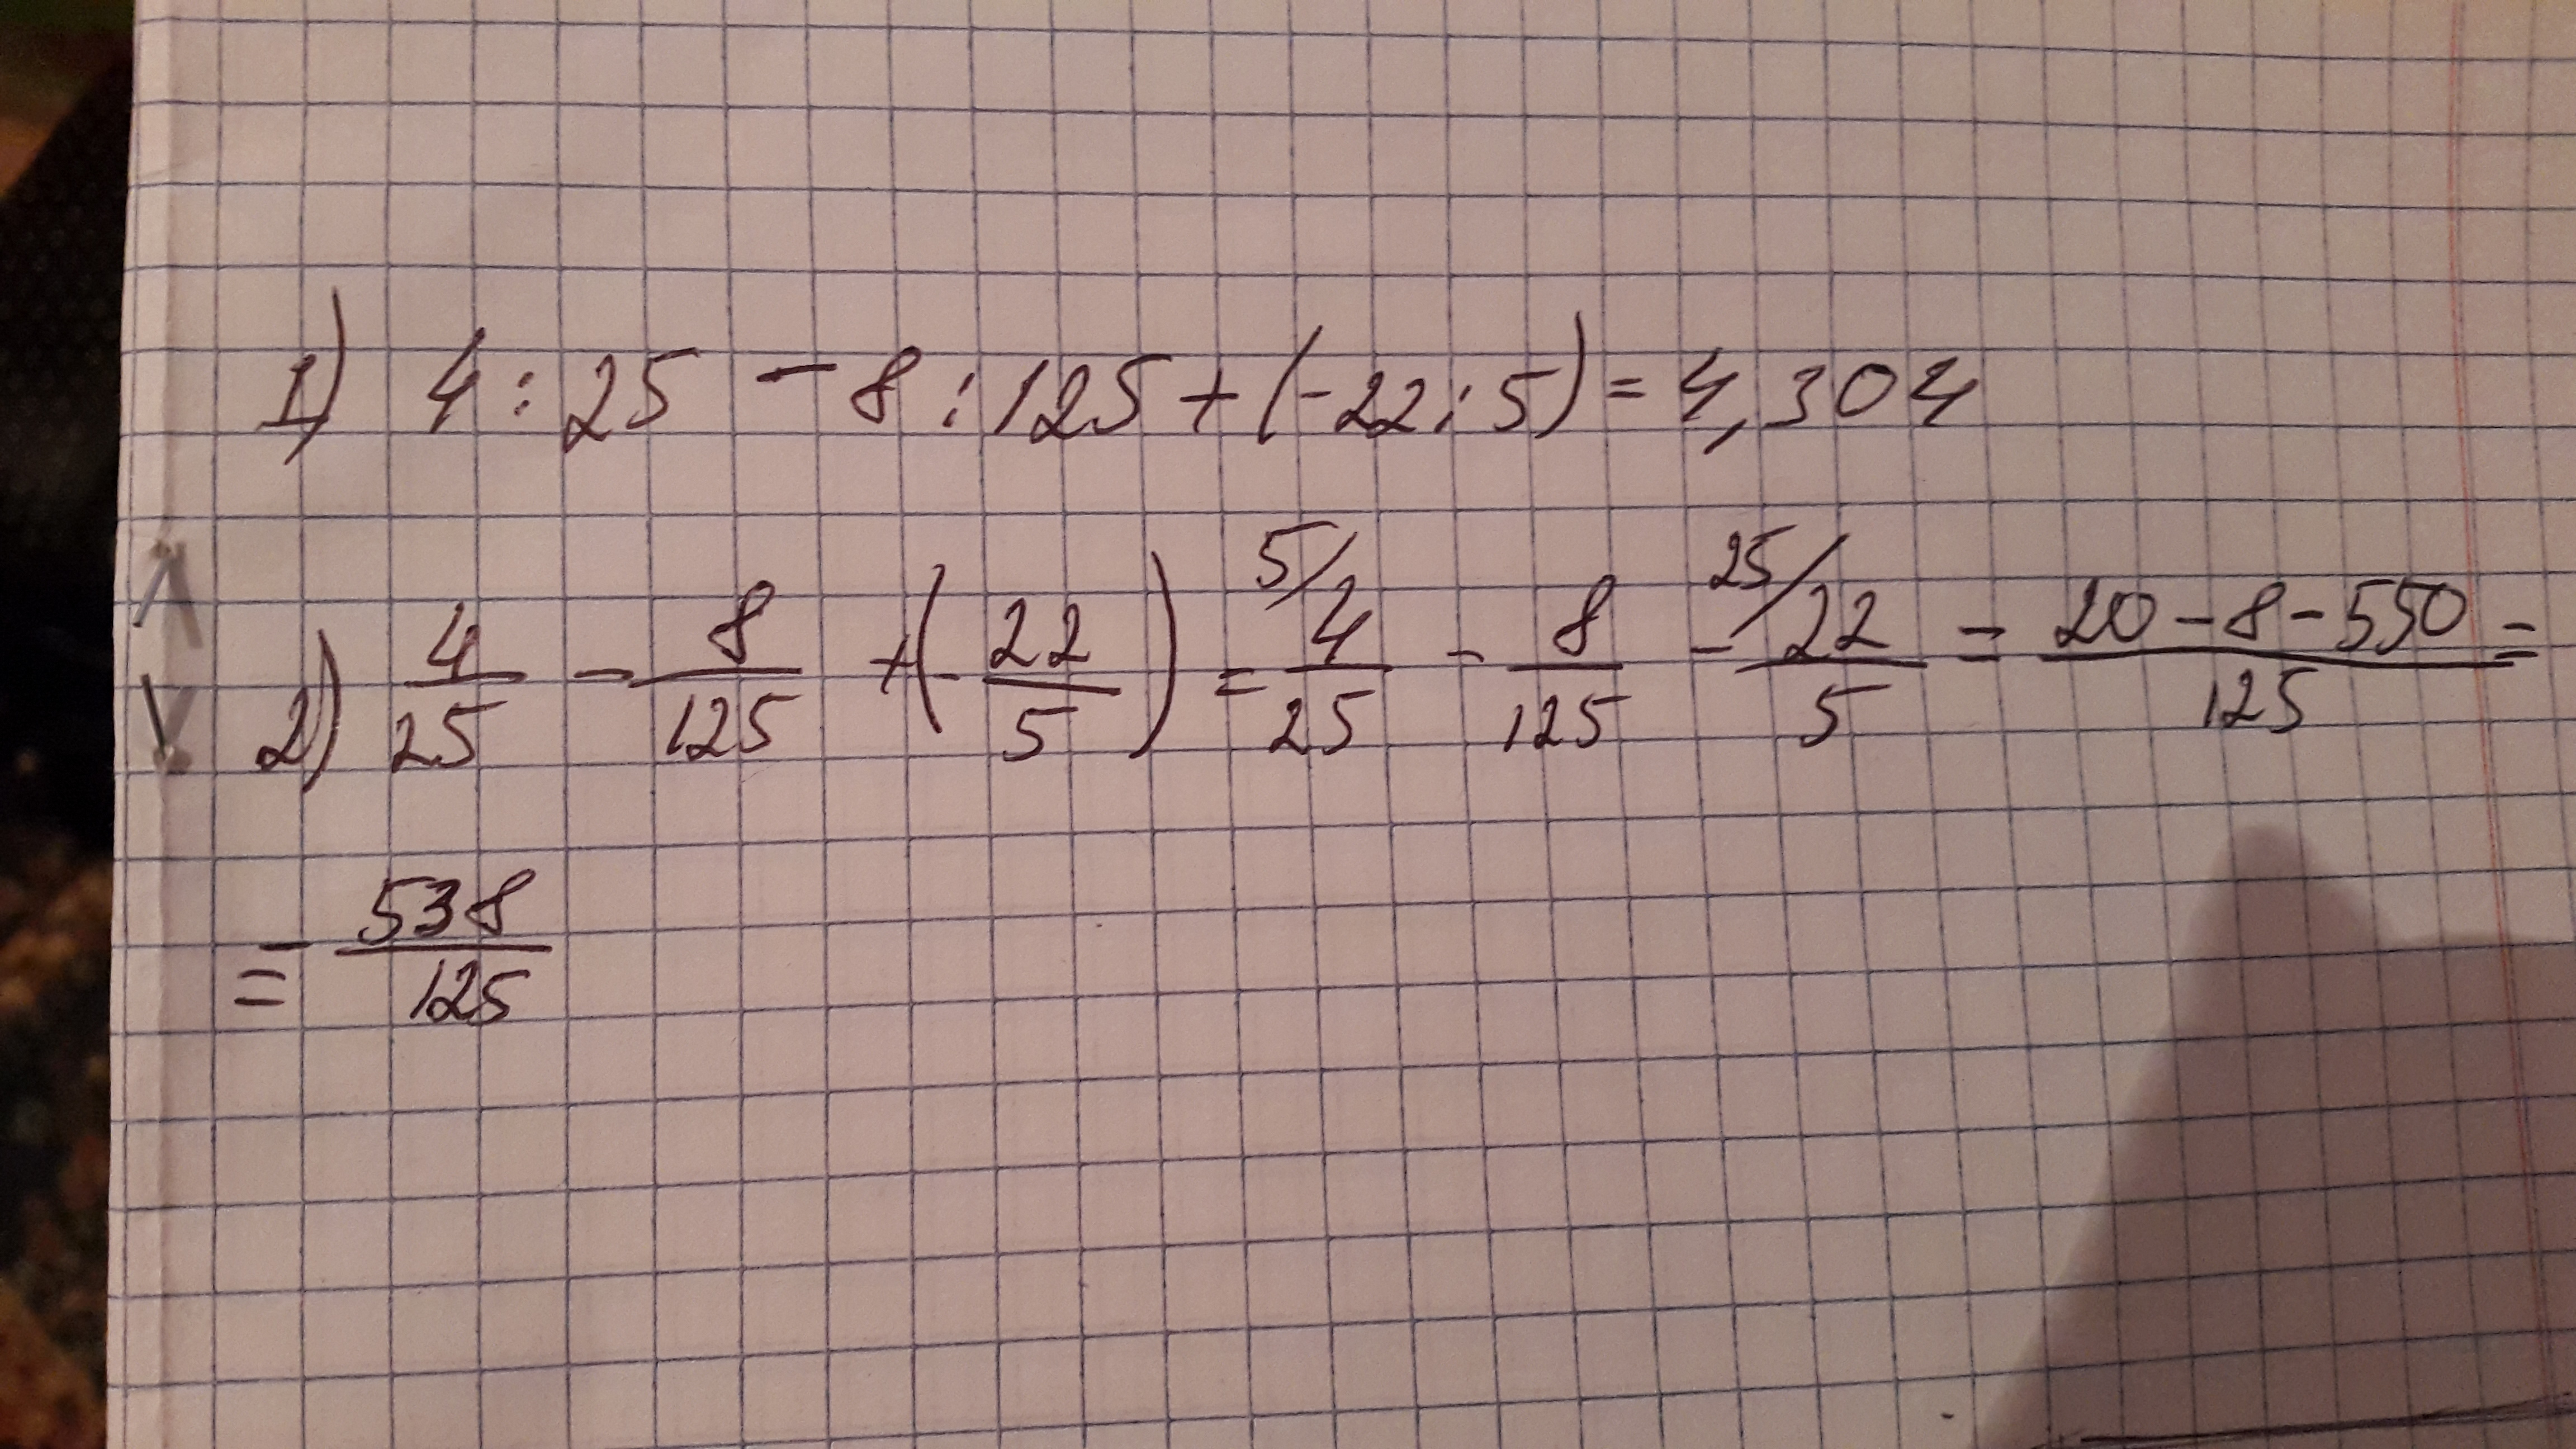 1) 4 : 25 - 8 : 125 + (-22 : 5) = 4,304
2) 4/25 - 8/125 + (-22/5) = 5/ 4/25 - 8/125 - 25/ 22/5 = (20 - 8 - 550)/125 =
= - 538/125